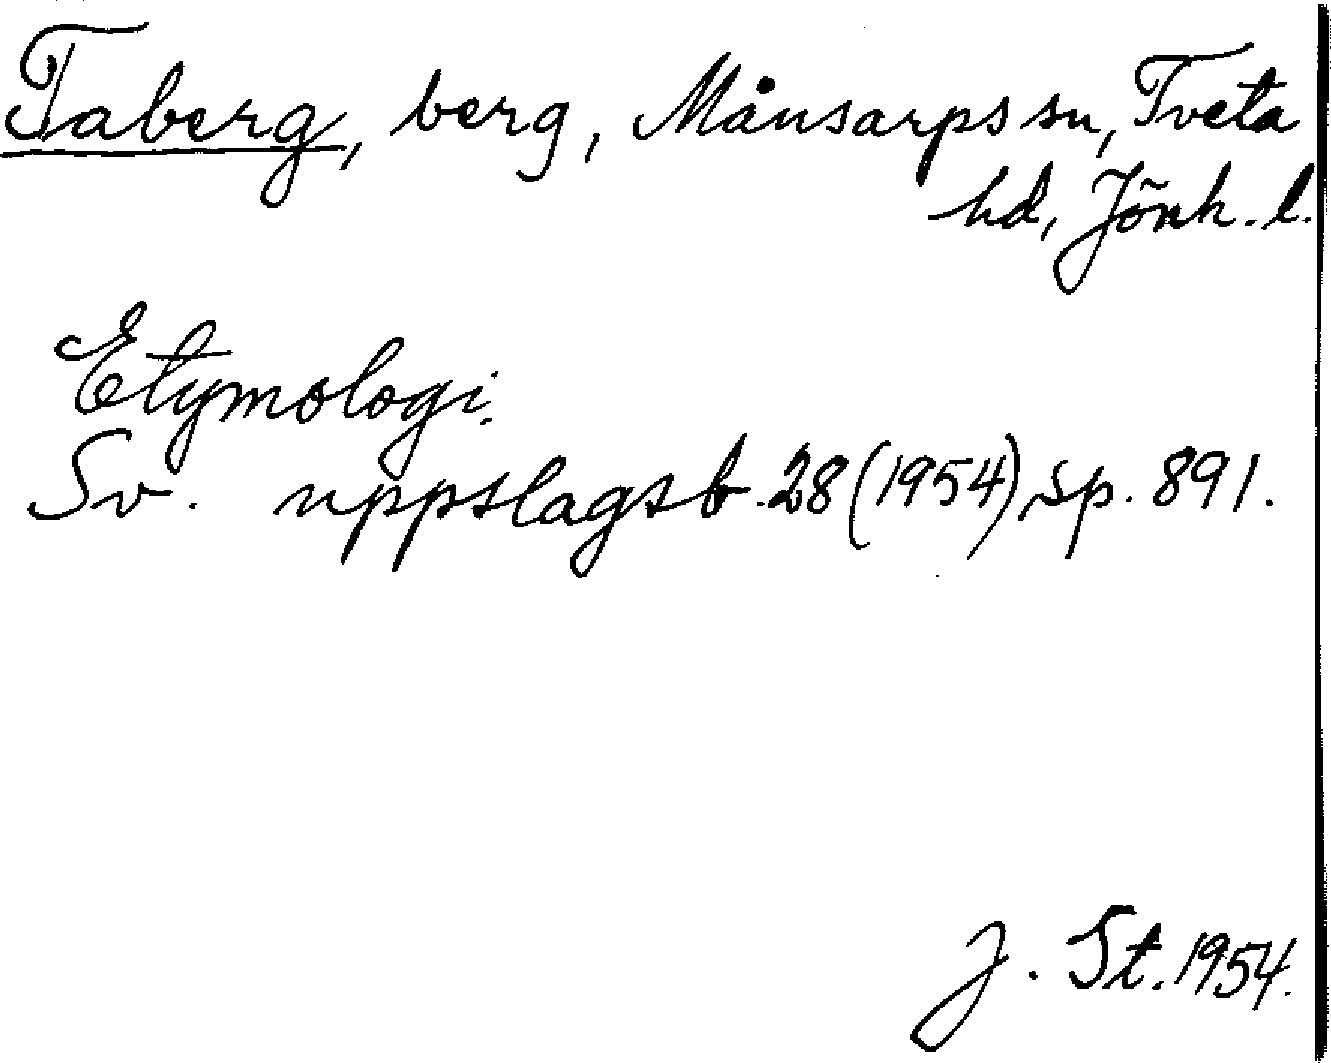 Taberg, berg, Månsarps sn, Tveta
hd, Jönk. l.
Etymologi.
Sv. uppslagsb. 28 (1954), sp. 891.
J. St. 1954.